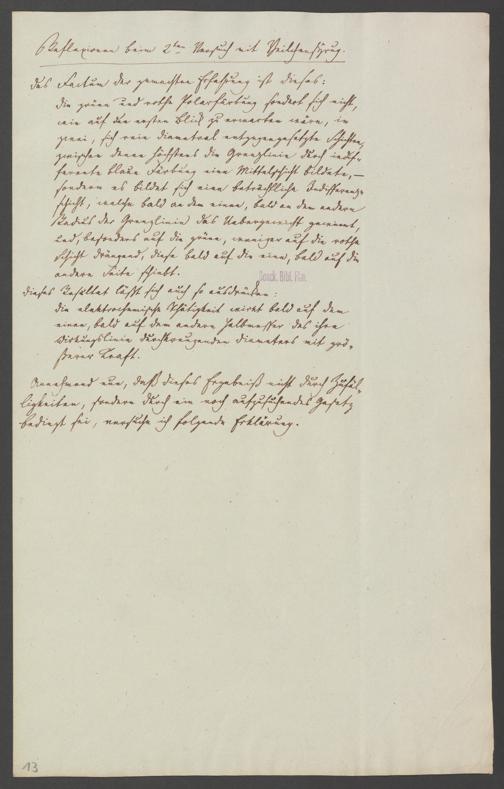 Reflexionen beim 2ten Versuch mit Veilchensyrup.
Das Factum der gemachten Erfahrung ist dieses:
die grüne und rothe Polarfärbung sondert sich nicht,
wie auf den ersten Blick zu erwarten wäre, in
zwei, sich rein diametral entgegengesetzte Schichten,
zwischen denen höchstens die Grenzlinie durch indif-
ferente blaue Färbung eine Mittelschicht bildete, —
sondern es bildet sich eine beträchtliche Indifferenz-
schicht, welche bald an dem einen, bald an dem andern
Radius der Grenzlinie das Uebergewicht gewinnt,
und, besonders auf die grüne, weniger auf die rothe
Schicht drängend, diese bald auf die eine, bald auf die
andere Seite schiebt.
Senck. Bibl. Ffm.
Dieses Resultat läßt sich auch so ausdrücken:
die elektrochemische Thätigkeit wirkt bald auf dem
einen, bald auf dem andern Halbmesser des ihre
Wirkungslinie durchkreuzenden Diameters mit grö-
ßerer Kraft.
Annehmend nun, daß dieses Ergebniß nicht durch Zufäl-
ligkeiten, sondern durch ein noch aufzufindendes Gesetz
bedingt sei, versuche ich folgende Erklärung.
13